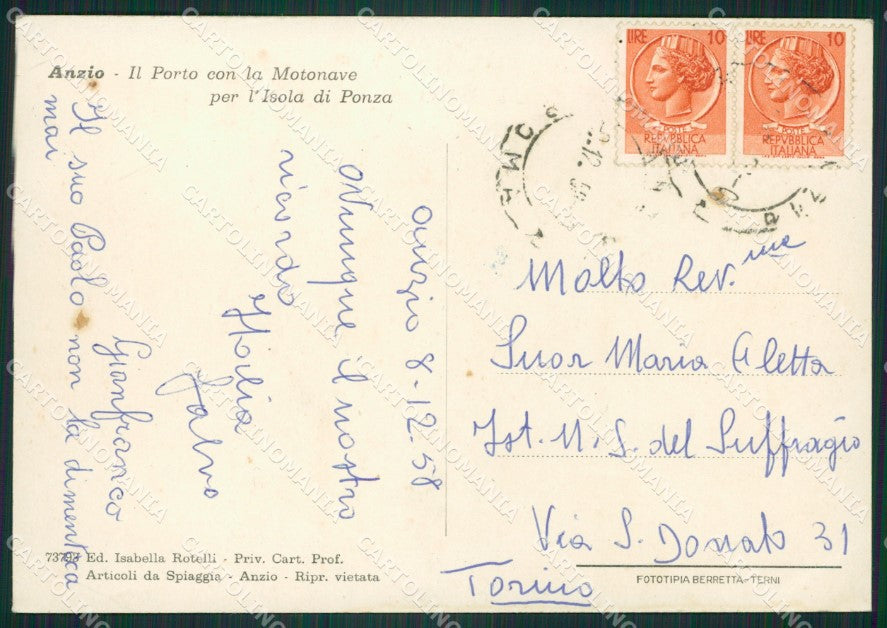 Anzio - Il Porto con la Motonave
per l'Isola di Ponza
LIRE 10
POSTE
REPVBBLICA
ITALIANA
LIRE 10
POSTE
REPVBBLICA
ITALIANA
Anzio 8-12.58
Ovunque il nostro
ricordo
Italia
Salvo
Gianfranco
Il suo Paolo non la dimentica
mai
Molto Rev.me
Suor Maria Aletta
Ist. N. S. del Suffragio
Via S. Donato 31
Torino
73794 Ed. Isabella Rotelli - Priv. Cart. Prof.
Articoli da Spiaggia - Anzio - Ripr. vietata
FOTOTIPIA BERRETTA-TERNI
CARTOLINOMANIA